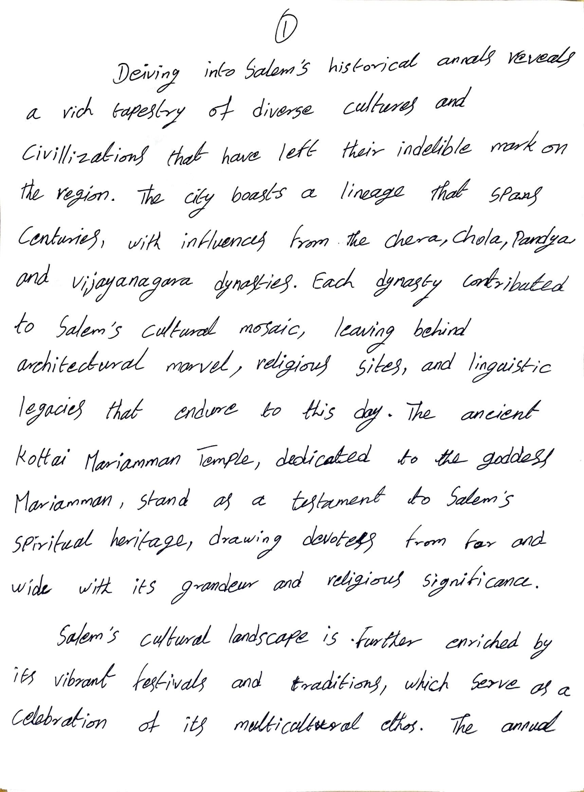 1
Deiving into Salem's historical annals reveals
a rich tapestry of diverse cultures and
Civillizations that have left their indelible mark on
the region. The city boasts a lineage that spans
Centuries, with influences from the chera, Chola, Pandya
and vijayanagara dynasties. Each dynasty contributed
to Salem's cultural mosaic, leaving behind
architectural marvel, religious sites, and linguistic
legacies that endure to this day. The ancient
Kottai Mariamman Temple, dedicated to the goddess
Mariamman, stand as a testament to Salem's
spiritual heritage, drawing devotess from far and
wide with its grandeur and religious significance.
Salem's cultural landscape is further enriched by
its vibrant festivals and traditions, which serve as a
Celebration of its multicultural ethos. The annual